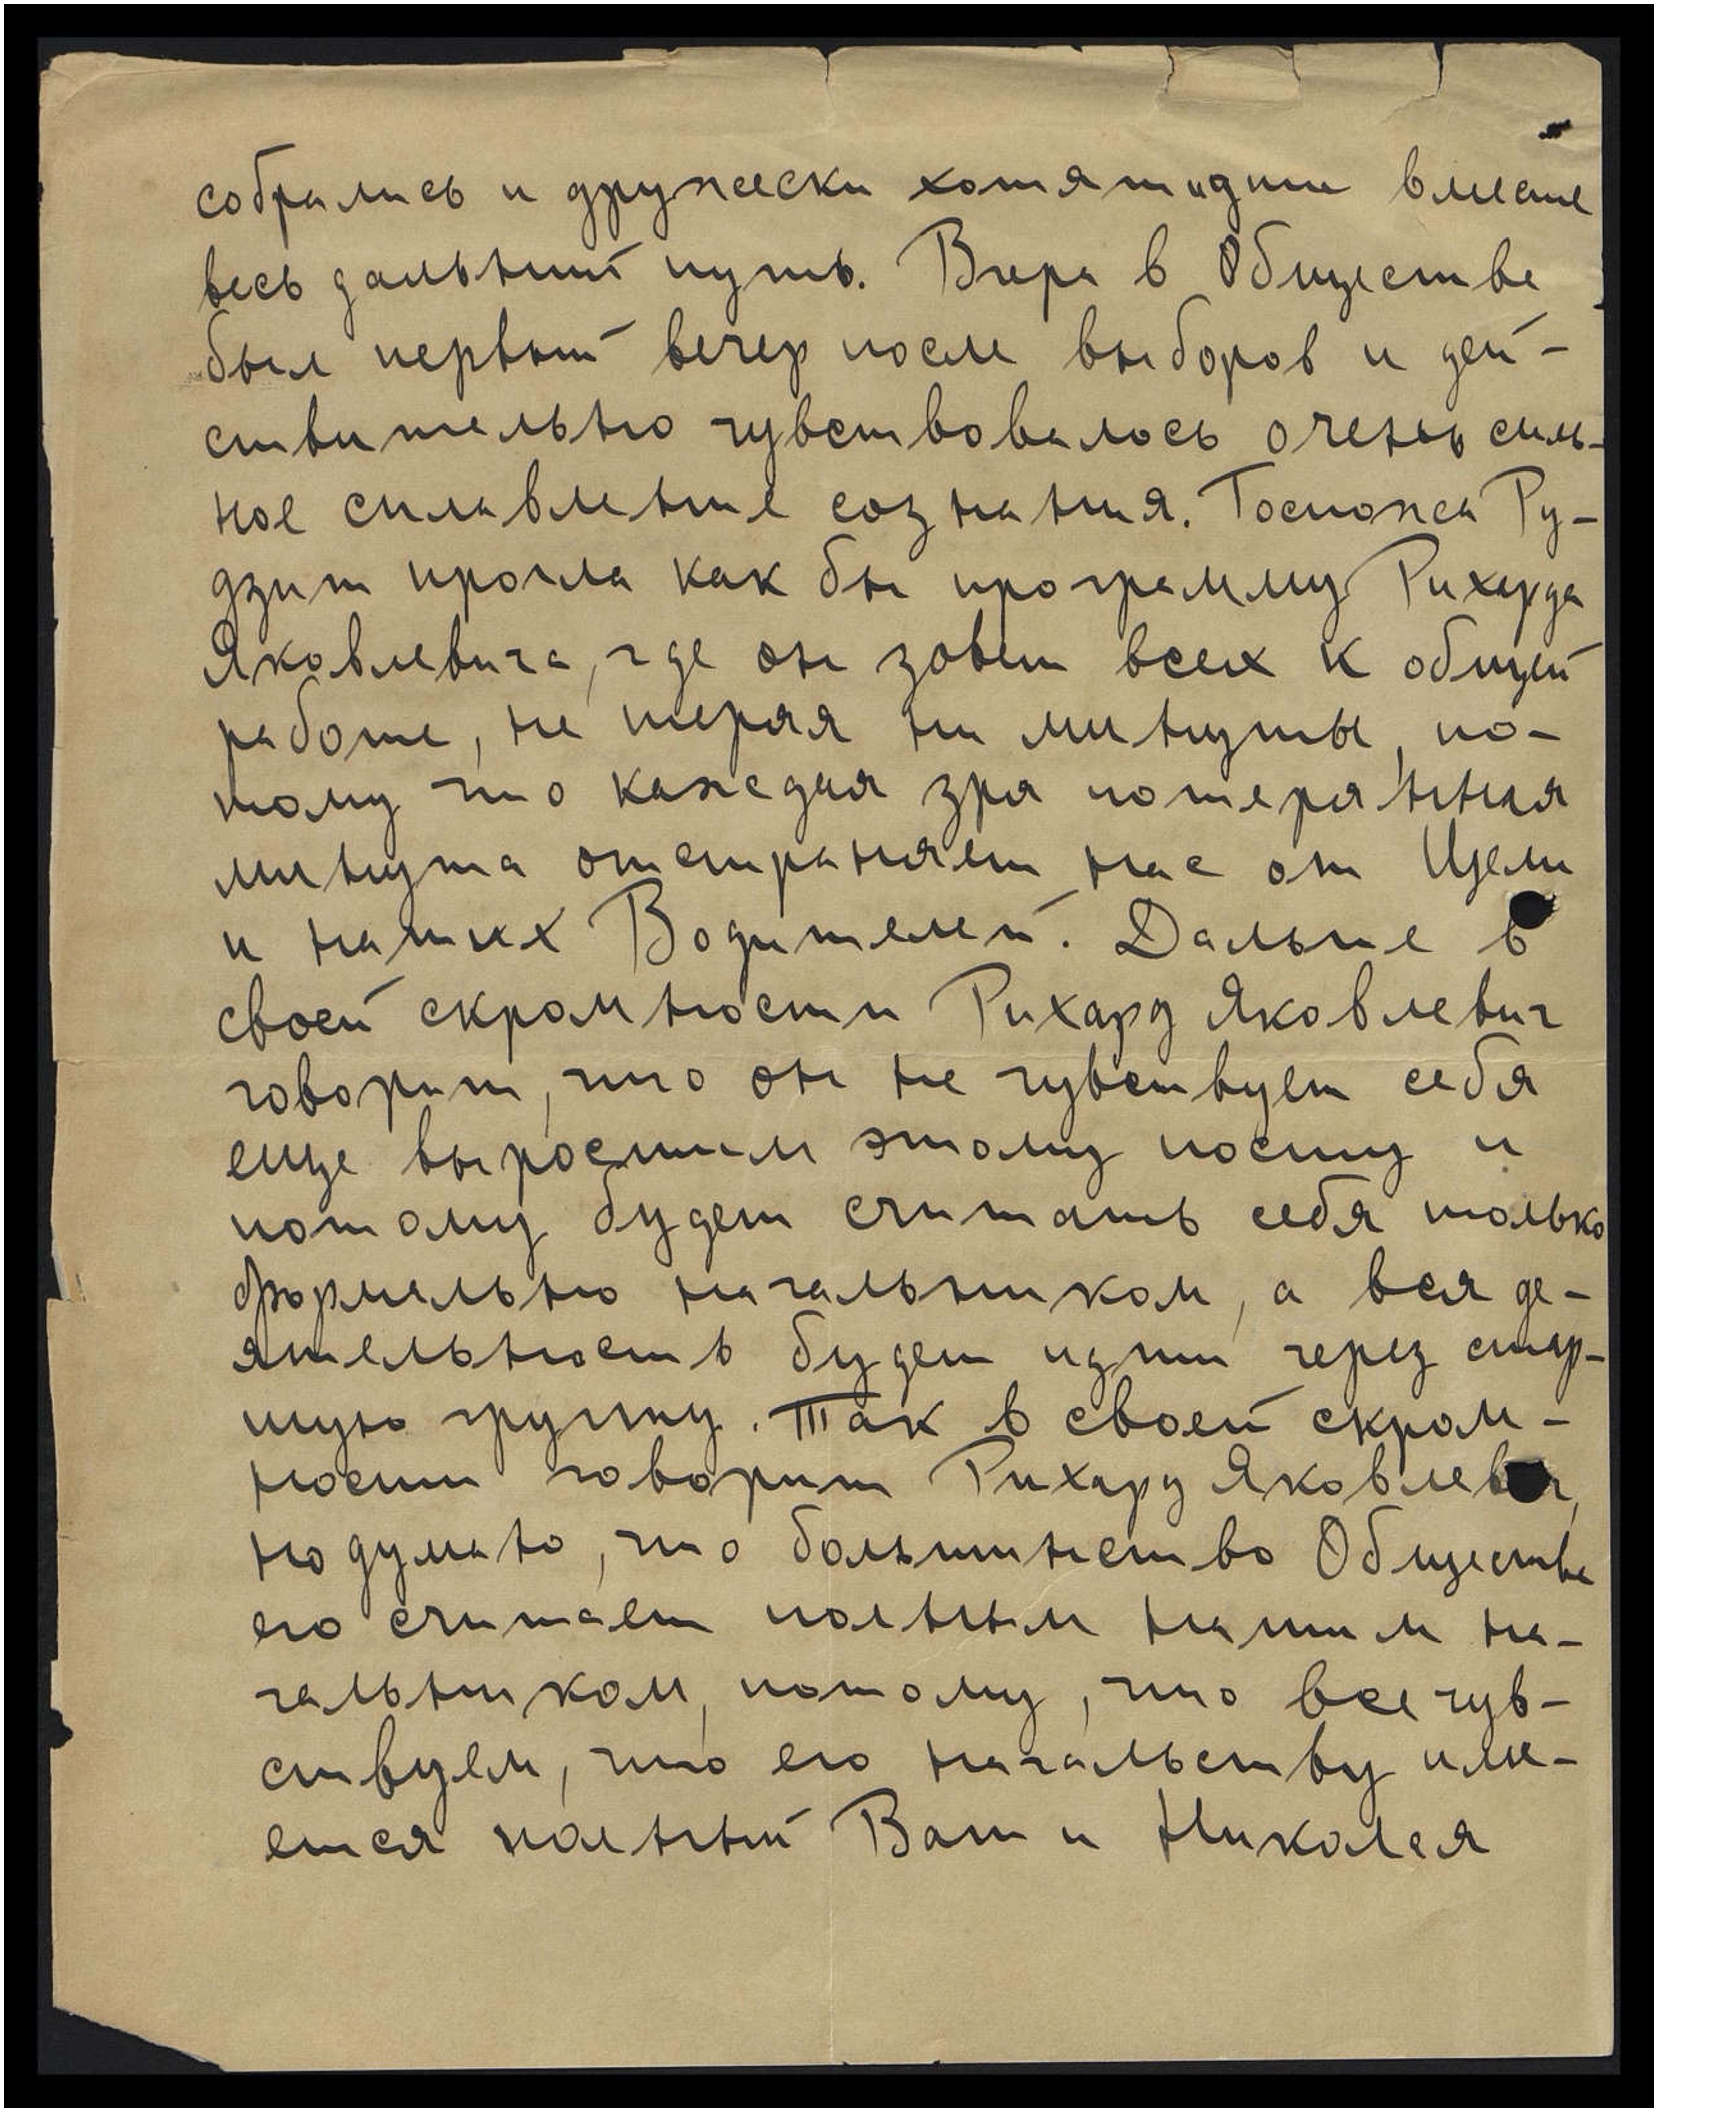 собрались и дружески хотят идти вместе
весь дальний путь. Вчера в Обществе
был первый вечер после выборов и дей-
ствительно чувствовалось очень силь-
ное сплавление сознания. Госпожа Ру-
дзит прочла как бы программу Рихарда
Яковлевича, где он зовет всех к общей
работе, не теряя ни минуты, по-
тому что каждая зря потерянная
минута отстраняет нас от Цели
и наших Водителей. Дальше в
своей скромности Рихард Яковлевич
говорит, что он не чувствует себя
еще выросшим этому посту и
потому будет считать себя только
формально начальником, а вся де-
ятельность будет идти через стар-
шую группу. Так в своей скром-
ности говорит Рихард Яковлевич,
но думаю, что большинство Общества
его считает полным нашим на-
чальником, потому, что все чув-
ствуем, что его начальству име-
ется полный Ваш и Николая